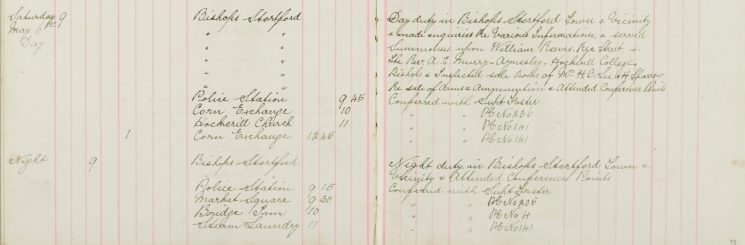 Saturday 9 Bishops Stortford
May 6th
Day
" "
" "
" "
" "
" "
Police Station 9 45
Corn Exchange 10
Hockerill Church 11
1 Corn Exchange 12 45
Night 9 Bishops Stortford
Police Station 9 15
Market Square 9 30
10
Steam Laundry 11
Day duty in Bishops Stortford Town & Vicinity
& made enquiries Re Various Informations, & served
Summons upon William Reeves Rye Street &
The Rev. A. E. Hockerill College
Bishops & Inspected sale Books of Mr. H. D. Lee & H Sparrow
Re sale of Arms & Ammunition & Attended Conference Points
Conferred with Supt Foster
" " PC No 236
" " PC No 141
" " PC No 141
Night duty in Bishops Stortford Town &
Vicinity & Attended Conference Points
Conferred with Supt Foster
" " PC No 205
" " PC No 4
" " PC No 141